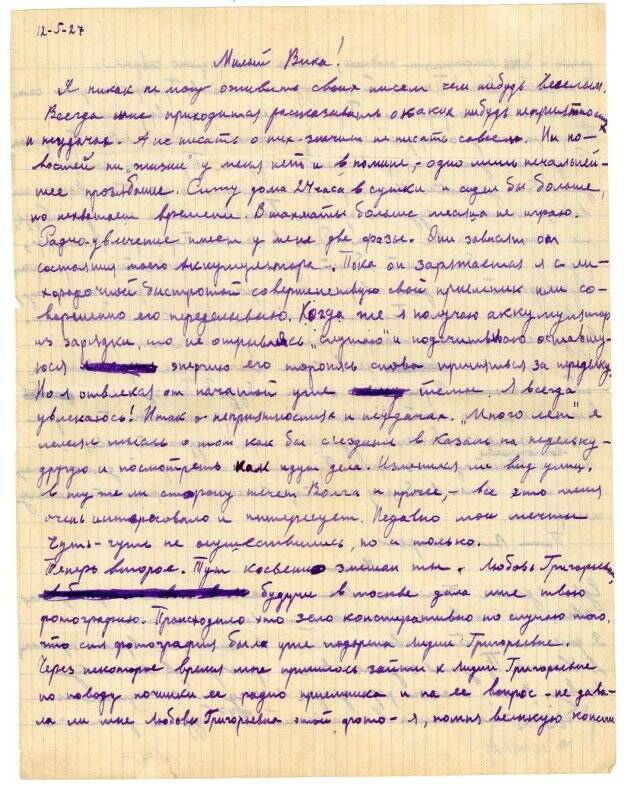 12-5-27
Милый Вика!
Я никак не могу оживить своих писем чем нибудь веселым.
Всегда мне приходится рассказывать о каких нибудь неприятностях
и неудачах. А не писать о них - значит не писать совсем. Ни но-
востей ни "жизни" у меня нет и в помине, - одно лишь печальней-
шее прозябание. Сижу дома 24 часа в сутки и сидел бы больше,
но нехватает времени. В шахматы больше месяца не играю.
Радио-увлечение имеет у меня две фазы. Они зависят от
состояния моего аккумулятора. Пока он заряжается я с ли-
хорадочной быстротой совершенствую свой приемник или со-
вершенно его переделываю. Когда же я получаю аккумулятор
из зарядки, то не отрываясь "слушаю" и подсчитываю оставшу-
юся энергию его торопясь снова приняться за переделку.
Но я отвлекся от начатой уже темы. Я всегда
увлекаюсь! Итак о неприятностях и неудачах. "Много лет" я
лелеял мысль о том как бы съездить в Казань на недельку-
другую и посмотреть как идут дела. Изменился ли вид улиц,
в ту же ли сторону течет Волга и прочее, - все это меня
очень интересовало и интересует. Недавно мои мечты
чуть-чуть не осуществились, но и только.
Теперь второе. Тут косвенно замешан ты. Любовь Григорьевна,
будучи в москве дала мне твою
фотографию. Происходило это зело конспиративно по случаю того,
что сия фотография была уже подарена Лидии Григорьевне.
Через некоторое время мне пришлось зайти к Лидии Григорьевне
по поводу починки ее радио приемника и на ее вопрос - не дава-
ла ли мне Любовь Григорьевна этой фото - я, помня великую